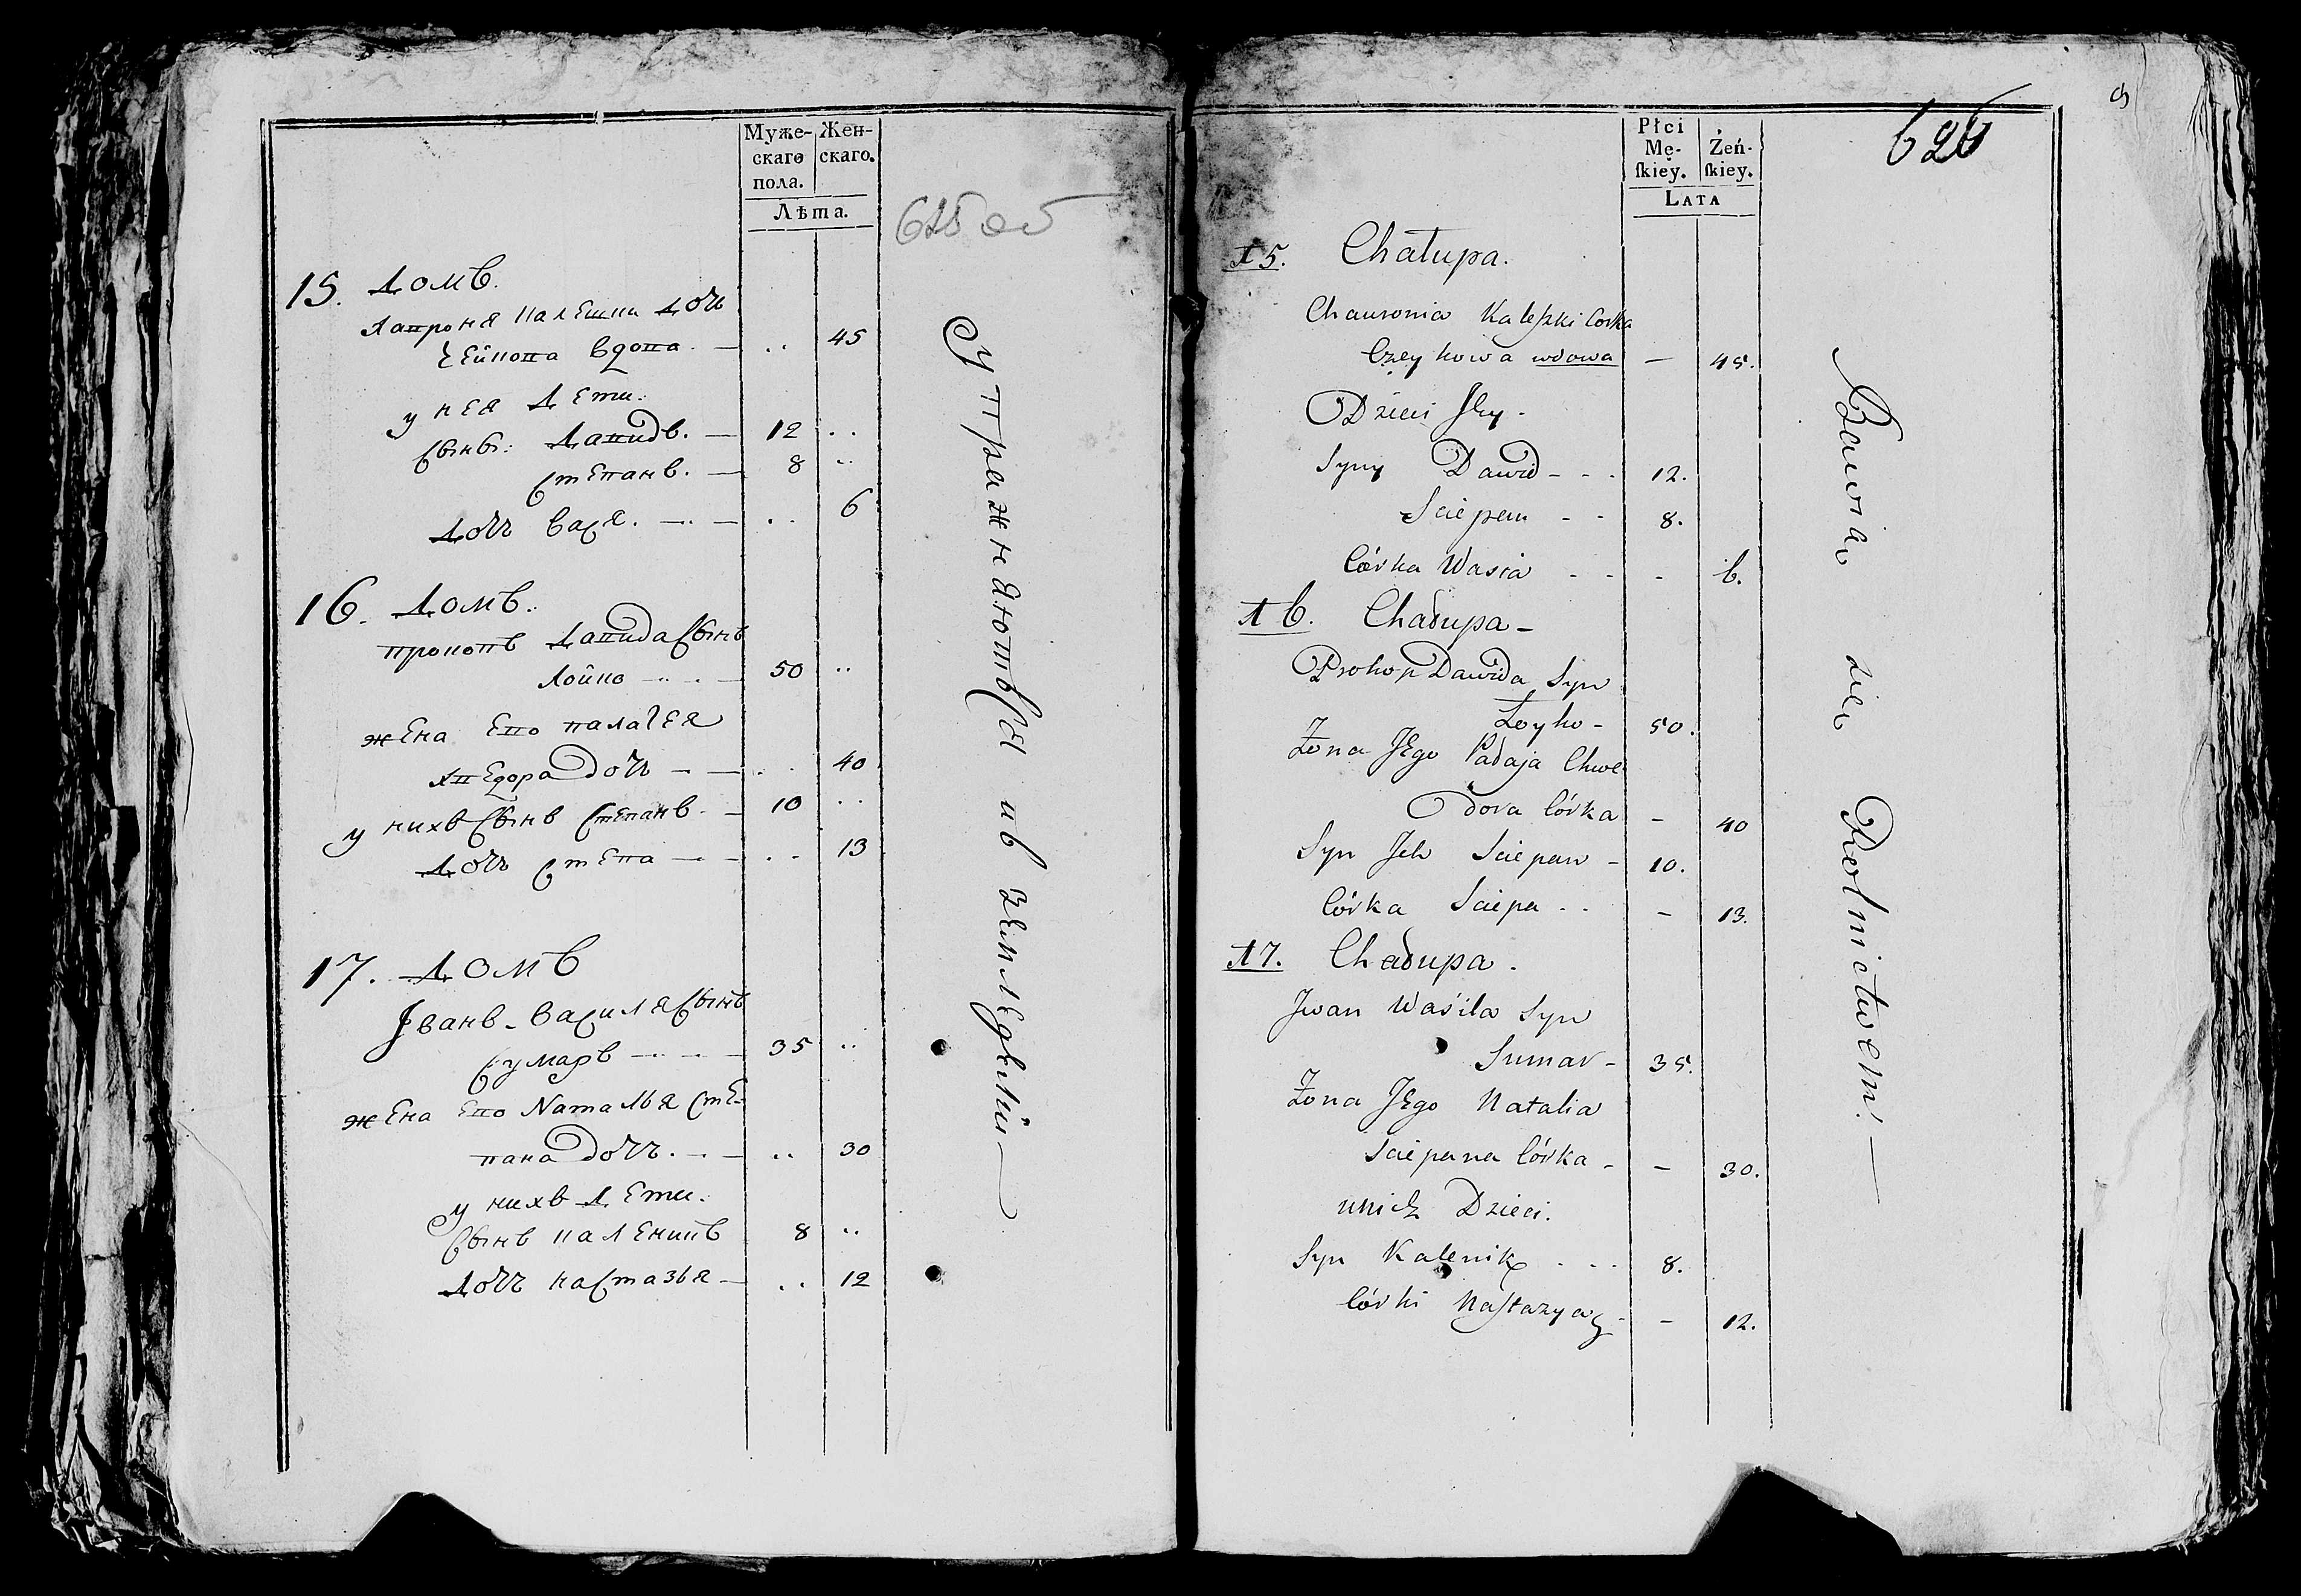 Муже-
скаго
пола.
Жен-
скаго.
Лѣта.
625 об
15. Домъ.
Хапроня Калешки дочь
Чейкова вдова. — .. 45
у нея Дети.
Сынъ: Давидъ. — 12 ..
Степанъ. — 8 ..
Дочь Вася. — .. 6
16. Домъ.
Прокопъ Давида Сынъ
Лойко — 50 ..
жена Его Палагея
Хведора дочь — .. 40
у нихъ Сынъ Степанъ. — 10 ..
Дочь Степа — .. 13
17. Домъ
Iванъ Василя Сынъ
Сумаръ — 35 ..
жена Его Наталья Сте-
пана дочь. — .. 30
у нихъ Дети.
Сынъ Каленикъ 8 ..
Дочь Настазья — .. 12
Упражняютъся въ земледелии —
Płci
Mę-
ſkiey.
Żeń-
ſkiey.
LATA
626
15. Chałupa.
Chauronia Kaleszki Corka
Czeykowa wdowa — 45.
Dzieci Jey.
Syny Dawid - - - 12.
Sciepan - - 8.
Córka Wasia - - - 6.
16. Chałupa –
Prokop Dawida Syn
Łoyko - 50.
Żona JEgo Pałaja Chwe
dora Córka - 40
Syn Jch Sciepan - 10.
Córka Sciepa - - - 13.
17. Chałupa.
Jwan Waśila Syn
Sumar - 35.
Żona JEgo Natalia
Sciepana Córka - - 30.
unich Dzieci.
Syn Kalenik - - - 8.
Córki Nastazya - - 12.
Bawią się Rolnictwem. —